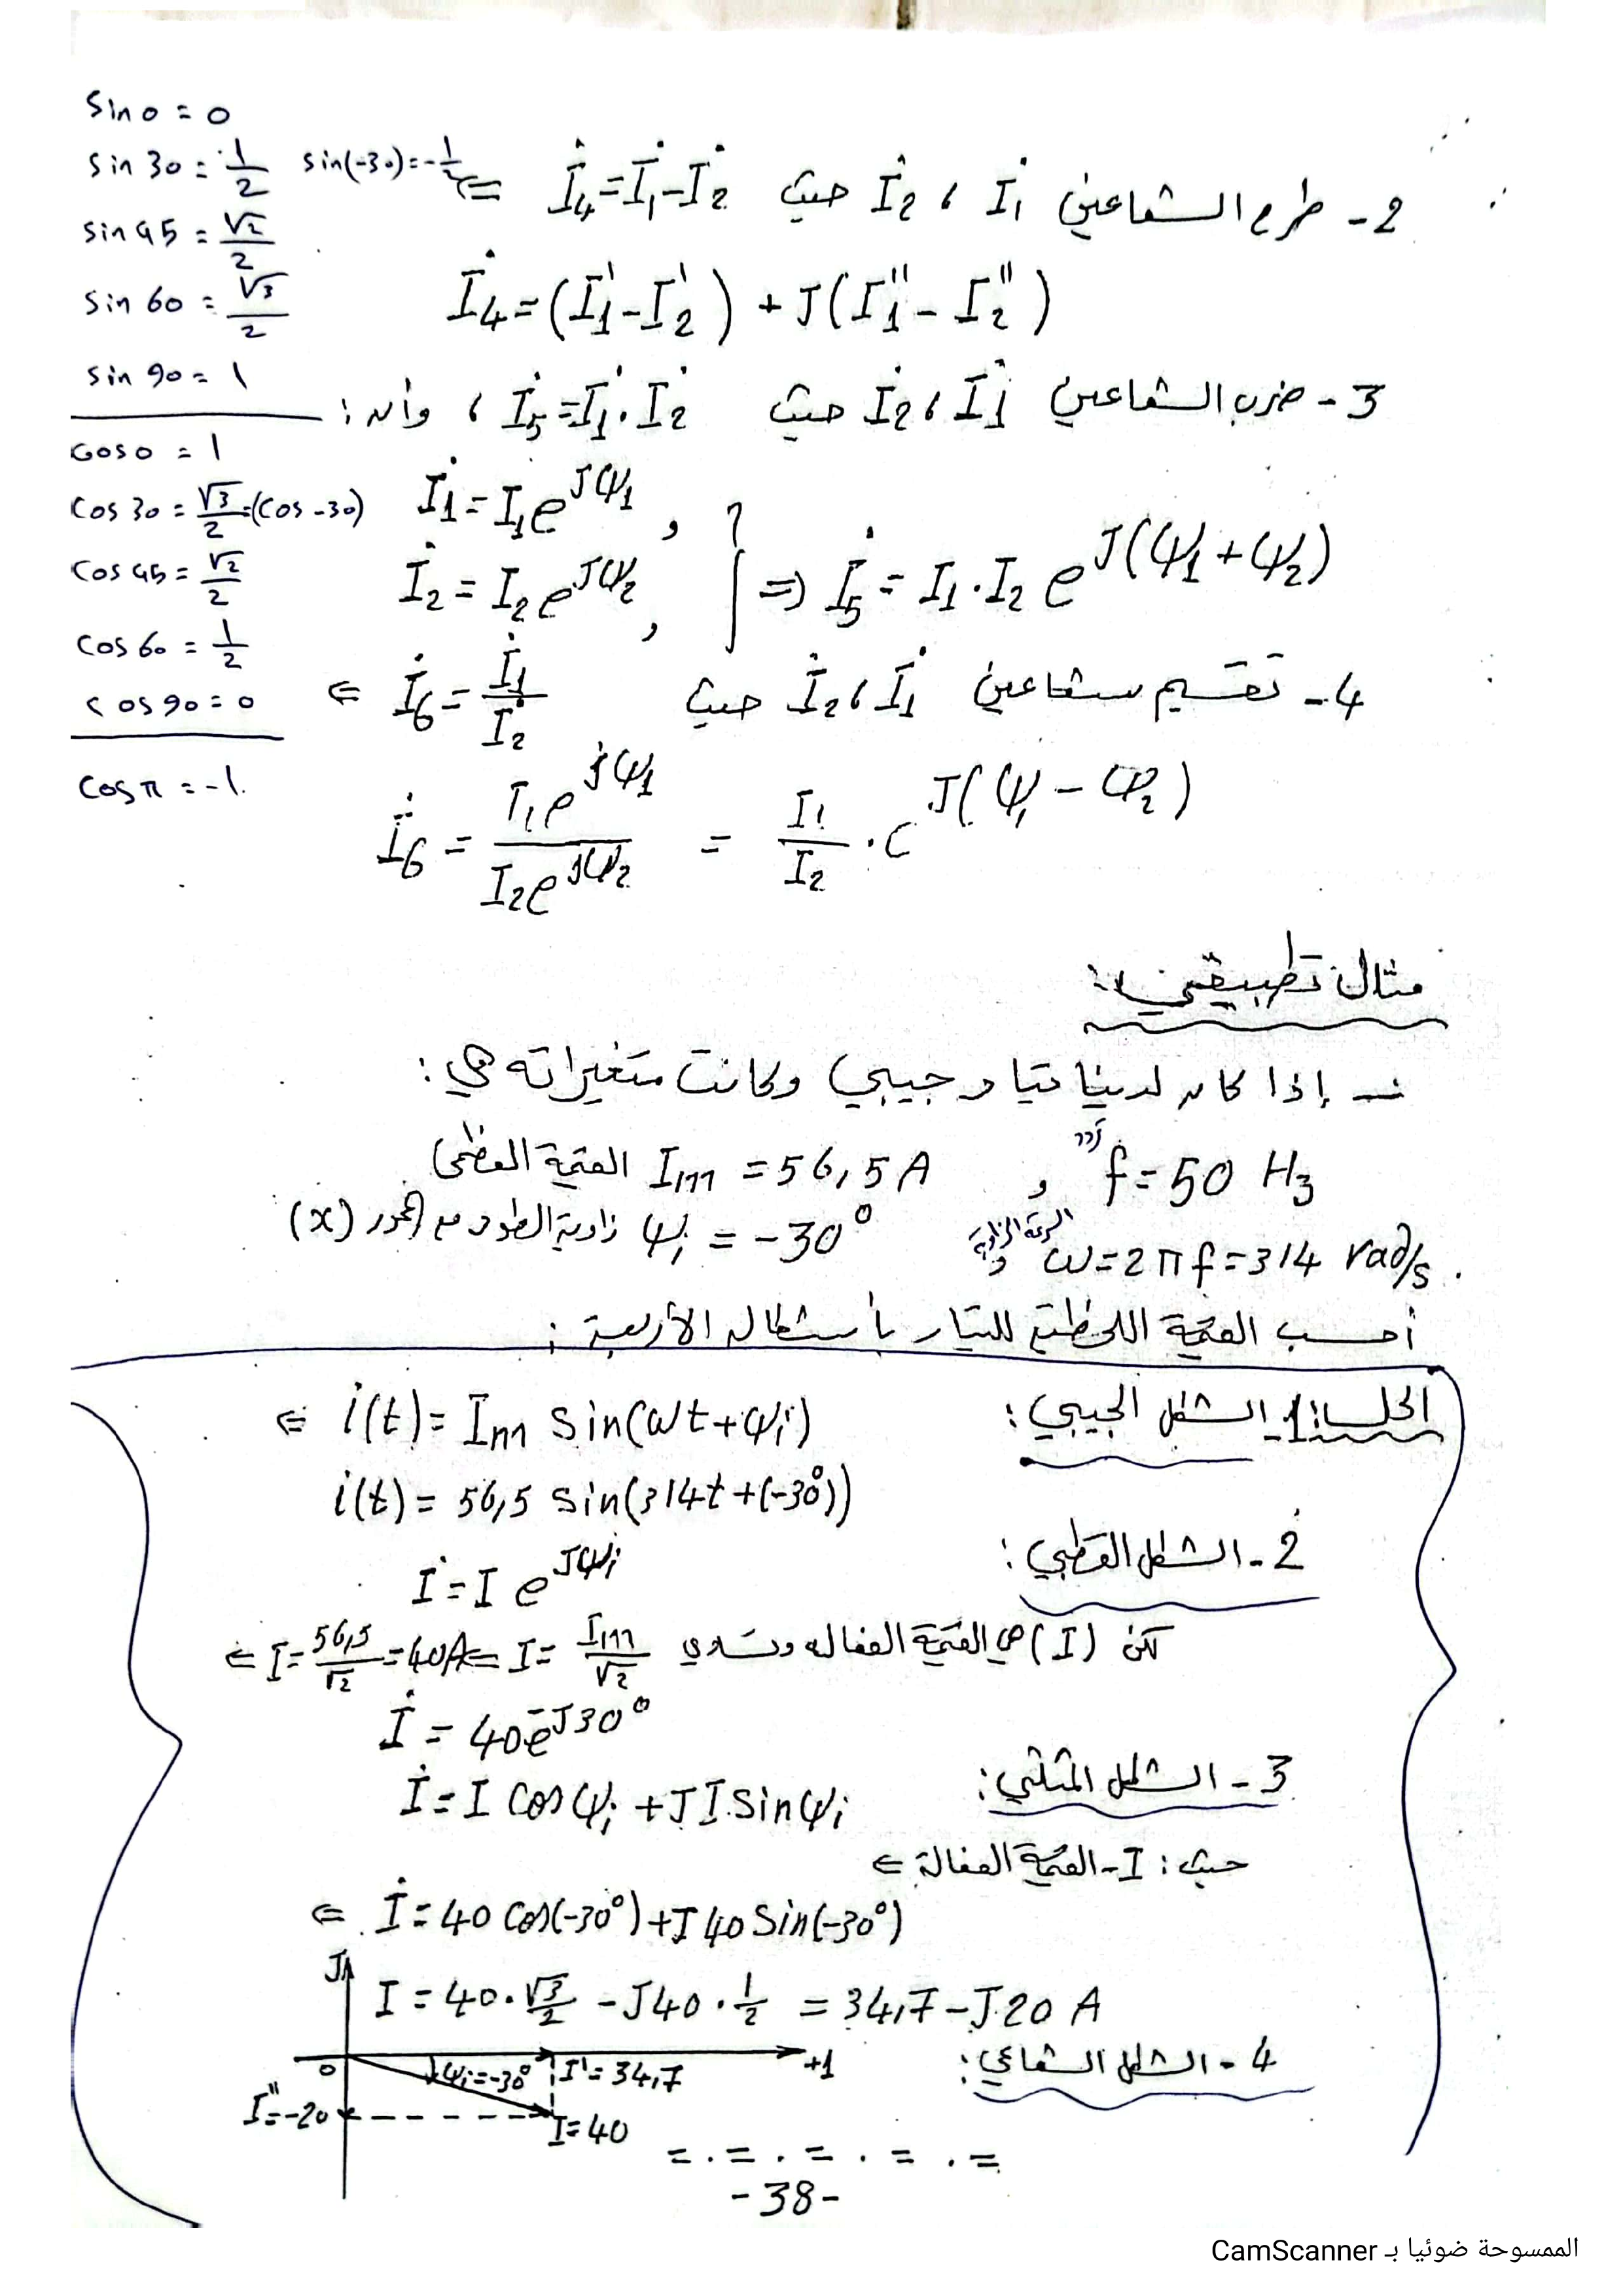 sin 0 = 0
sin 30 = 1/2 sin(-30) = -1/2
sin 45 = √2/2
sin 60 = √3/2
sin 90 = 1
cos 0 = 1
cos 30 = √3/2 = (cos -30)
cos 45 = √2/2
cos 60 = 1/2
cos 90 = 0
cos π = -1
2 - طرح الشعاعين İ1 ، İ2 حيث İ4 = İ1 - İ2 ⇐
İ4 = (I'1 - I'2) + J(I''1 - I''2)
3 - ضرب الشعاعين İ1 ، İ2 حيث İ5 = İ1 . İ2 ، وأن :
İ1 = I1 e^Jψ1 ,
İ2 = I2 e^Jψ2 , } ⇒ İ5 = I1 . I2 e^J(ψ1 + ψ2)
4 - تقسيم شعاعين İ1 ، İ2 حيث İ6 = İ1/İ2 ⇐
İ6 = I1 e^jψ1 / I2 e^jψ2 = I1/I2 . e^J(ψ1 - ψ2)
مثال تطبيقي :
- إذا كان لدينا تيار جيبي وكانت متغيراته هي :
تردد f = 50 Hz , Im = 56,5 A القيمة العظمى
السرعة الزاوية ω = 2πf = 314 rad/s . و ψi = -30° زاوية الطور مع المحور (x)
أحسب القيمة اللحظية للتيار بأشكاله الأربعة :
الحل : 1 - الشكل الجيبي : i(t) = Im sin(ωt + ψi) ⇐
i(t) = 56,5 sin(314t + (-30°))
2 - الشكل القطبي :
İ = I e^Jψi
لكن (I) هي القيمة الفعاله وتساوي I = Im/√2 ⇐ I = 56,5/√2 = 40A ⇐
İ = 40 e^-J30°
3 - الشكل المثلثي :
İ = I cos ψi + J I sin ψi
حيث : I - القيمة الفعالة ⇐
İ = 40 cos(-30°) + J 40 sin(-30°) ⇐
I = 40 . √3/2 - J40 . 1/2 = 34,7 - J20 A
4 - الشكل الشعاعي :
J
0
+1
ψi = -30°
I' = 34,7
I'' = -20
I = 40
= . = . = . = . =
- 38 -
الممسوحة ضوئيا بـ CamScanner